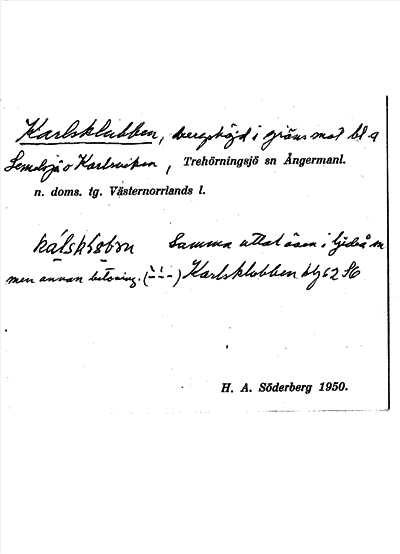 Karlsklubben, bergshöjd i gräns mot bl a
Lemesjö o Karlsviken, Trehörningsjö sn Ångermanl.
n. doms. tg. Västernorrlands l.
kálsklobɷn Samma uttal även i
men annan betoning. Karlsklobben blz 62 St6
H. A. Söderberg 1950.